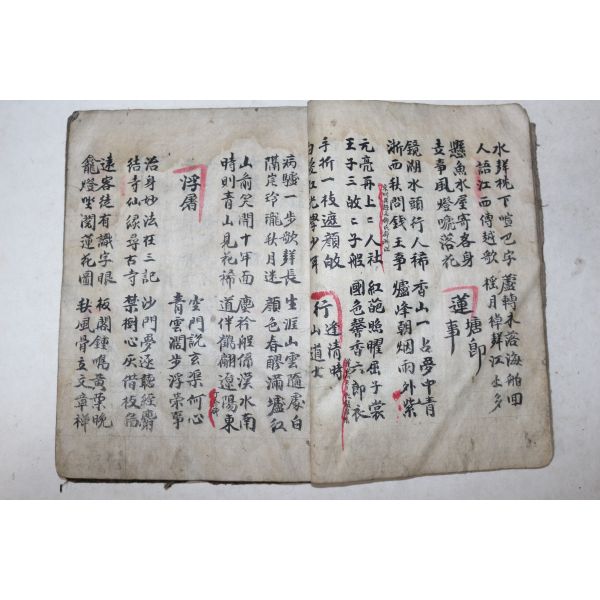 水鮮枕下喧巴字 蘆轉未落海舶回
人語江西傳越歌 搖月棹鮮江上多
懸魚水屋寄客身 蓮塘郎
立事風燈落花 事
鏡湖水頭行人稀 香山一占夢中青
浙西秋問錢王事 爐峰朝烟雨外紫
元亮再上二人社 紅葩照曜屈子裳
王子三故二子般 國色馨香六郎衣
手折一枝遮顔 行逢清時
紅光學沙 山道士
病驢一步歌鮮長 生涯山雲隨處白
隔岸玲瓏秋月迷 顔色春醪滿壚紅
山前笑開十年面 塵衿係漢水南
時則青山見花稀 道伴翩遼陽東
浮屠 空門說玄渠何心
青雲闊步浮榮事
治身妙法在三記 沙門夢逐聽經麝
結寺仙緣尋古寺 禁樹心灰借枚
遠客徒有識字眼 板閣鍾鳴黃栗晩
龕燈坐閱蓮花圖 秋風骨立文章禪